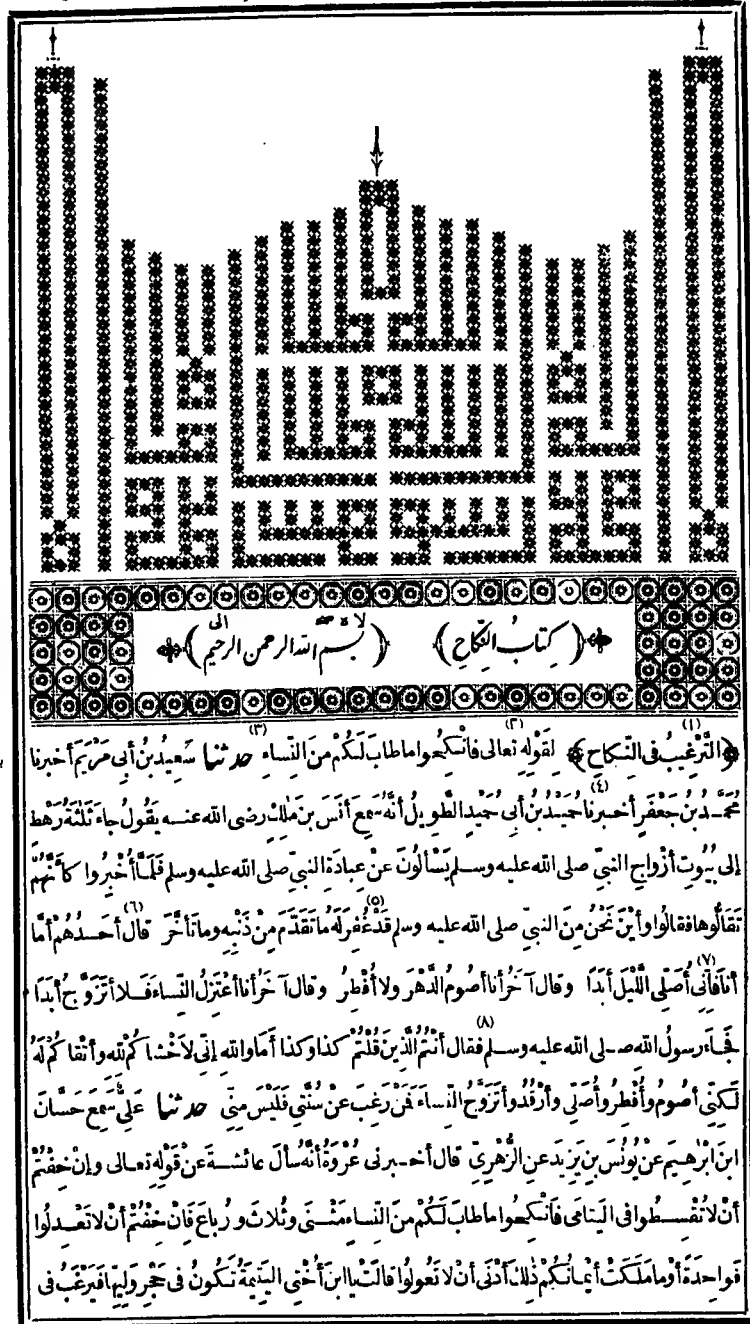 ﴿ كِتَابُ النِّكَاحِ ﴾ ﴿ بسم الله الرحمن الرحيم ﴾
﴿ التَّرْغِيبُ فِي النِّكَاحِ ﴾ (١) لِقَوْلِهِ تعالى (٢) فَانْكِحُوا ما طابَ لَكُمْ مِنَ النِّساءِ (٣) حدثنا سَعِيدُ بنُ أبى مَرْيَمَ أخبرنا
مُحَمَّدُ بنُ جَعْفَرٍ أخبرنا (٤) حُمَيْدُ بنُ أبى حُمَيْدٍ الطَّوِيلُ أنَّهُ سَمِعَ أنَسَ بنَ مٰلِكٍ رضى الله عنه يَقُولُ جاءَ ثَلٰثَةُ رَهْطٍ
إلى بُيُوتِ أزْواجِ النبيِّ صلى الله عليه وسلم يَسْألُونَ عَنْ عِبادَةِ النبيِّ صلى الله عليه وسلم فَلَمَّا أُخْبِرُوا كَأنَّهُمْ
تَقَالُّوها فقالُوا وأيْنَ نَحْنُ مِنَ النبيِّ صلى الله عليه وسلم قَدْ غُفِرَ لَهُ (٥) ما تَقَدَّمَ مِنْ ذَنْبِهِ وما تَأخَّرَ قال (٦) أحَدُهُمْ أمَّا
أنا فَإنِّى (٧) أُصَلِّى اللَّيْلَ أبَدًا وقال آخَرُ أنا أصُومُ الدَّهْرَ ولا أُفْطِرُ وقال آخَرُ أنا أعْتَزِلُ النِّساءَ فَلا أتَزَوَّجُ أبَدًا
فَجاءَ رسولُ اللهِ صلى الله عليه وسلم (٨) فقال أنْتُمُ الَّذِينَ قُلْتُمْ كذا وكذا أمَا واللهِ إنِّى لَأخْشاكُمْ لِلهِ وأتْقاكُمْ لَهُ
لٰكِنِّى أصُومُ وأُفْطِرُ وأُصَلِّى وأرْقُدُ وأتَزَوَّجُ النِّساءَ فَمَنْ رَغِبَ عَنْ سُنَّتِى فَلَيْسَ مِنِّى حدثنا عَلِىٌّ سَمِعَ حَسَّانَ
ابنَ إبْرٰهِيمَ عَنْ يُونُسَ بنِ يَزِيدَ عنِ الزُّهْرِىِّ قال أخبرنى عُرْوَةُ أنَّهُ سألَ عائشةَ عَنْ قَوْلِهِ تعالى وإنْ خِفْتُمْ
أنْ لا تُقْسِطُوا فى اليَتامَى فَانْكِحُوا ما طابَ لَكُمْ مِنَ النِّساءِ مَثْنَى وثُلاثَ ورُباعَ فَإنْ خِفْتُمْ أنْ لا تَعْدِلُوا
فَواحِدَةً أوْ ما مَلَكَتْ أيْمانُكُمْ ذٰلِكَ أدْنَى أنْ لا تَعُولُوا قالَتْ يا ابنَ أُخْتِى اليَتِيمَةُ تَكُونُ فى حَجْرِ وَلِيِّها فَيَرْغَبُ فى